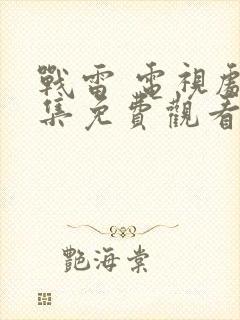 戰雷 電視處
集免費觀看
艷海棠